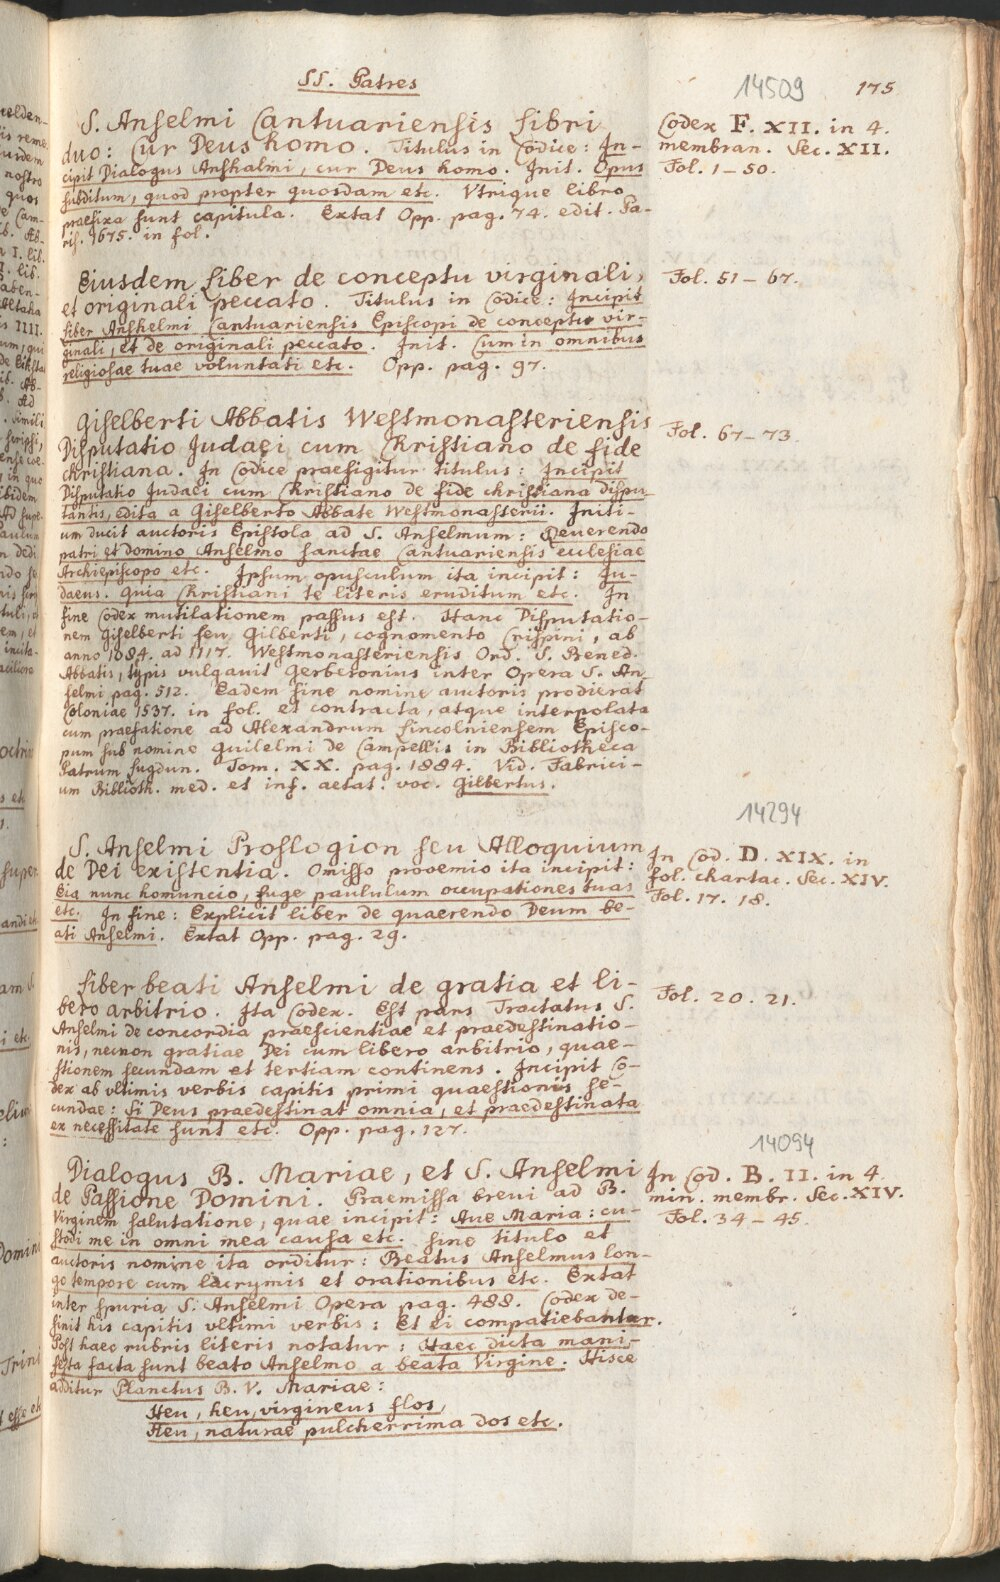 SS. Patres
14509
175
S. Anselmi Cantuariensis Libri
duo: Cur Deus homo. Titulus in Codice: In-
cipit Dialogus Anshalmi, cur Deus homo. Init. Opus
subditum, quod propter quosdam etc. Vtrique libro
praefixa sunt capitula. Extat Opp. pag. 74. edit. Pa-
ris. 1675. in fol.
Codex F. XII. in 4.
membran. Sec. XII.
Fol. 1-50.
Eiusdem Liber de conceptu virginali,
et originali peccato. Titulus in Codice: Incipit
liber Anshelmi Cantuariensis Episcopi de conceptu vir-
ginali, et de originali peccato. Init. Cum in omnibus
religiosae tuae voluntati etc. Opp. pag. 97.
Fol. 51-67.
Giselberti Abbatis Westmonasteriensis
Disputatio Judaei cum Christiano de fide
christiana. In Codice praefigitur titulus: Incipit
Disputatio Judaei cum Christiano de fide christiana dispu-
tantis, edita a Giselberto Abbate Westmonasterii. Initi-
um ducit auctoris Epistola ad S. Anselmum: Reuerendo
patri et domino Anselmo sanctae Cantuariensis ecclesiae
Archiepiscopo etc. Ipsum opusculum ita incipit: Ju-
daeus. Quia Christiani te literis eruditum etc. In
fine Codex mutilationem passus est. Hanc Disputatio-
nem Giselberti seu Gilberti, cognomento Crispini, ab
anno 1084. ad 1117. Westmonasteriensis Ord. S. Bened.
Abbatis, typis vulgauit Gerberonius inter Opera S. An-
selmi pag. 512. Eadem sine nomine auctoris prodierat
Coloniae 1537. in fol. et contracta, atque interpolata
cum praefatione ad Alexandrum Lincolniensem Episco-
pum sub nomine Guilelmi de Campellis in Bibliotheca
Patrum Lugdun. Tom. XX. pag. 1884. Vid. Fabrici-
um Biblioth. med. et inf. aetat. voc. Gilbertus.
Fol. 67-73.
14294
S. Anselmi Proslogion seu Alloquium
de Dei existentia. Omisso prooemio ita incipit:
Eia nunc homuncio, fuge paululum occupationes tuas
etc. In fine: Explicit liber de quaerendo Deum be-
ati Anselmi. Extat Opp. pag. 29.
In Cod. D. XIX. in
fol. chartac. Sec. XIV.
Fol. 17. 18.
Liber beati Anselmi de gratia et li-
bero arbitrio. Ita Codex. Est pars Tractatus S.
Anselmi de concordia praescientiae et praedestinatio-
nis, necnon gratiae Dei cum libero arbitrio, quae-
stionem secundam et tertiam continens. Incipit Co-
dex ab vltimis verbis capitis primi quaestionis se-
cundae: Si Deus praedestinat omnia, et praedestinata
ex necessitate sunt etc. Opp. pag. 127.
Fol. 20. 21.
14094
Dialogus B. Mariae, et S. Anselmi
de Passione Domini. Praemissa breui ad B.
Virginem salutatione, quae incipit: Aue Maria: cu-
stodi me in omni mea causa etc. sine titulo et
auctoris nomine ita orditur: Beatus Anselmus lon-
go tempore cum lacrymis et orationibus etc. Extat
inter spuria S. Anselmi Opera pag. 488. Codex de-
sinit his capitis vltimi verbis: Et ei compatiebantur.
Post haec rubris literis notatur: Haec dicta mani-
festa facta sunt beato Anselmo a beata Virgine. Hisce
additur Planctus B. V. Mariae:
Heu, heu, virgineus flos,
Heu, naturae pulcherrima dos etc.
In Cod. B. II. in 4
min. membr. Sec. XIV.
Fol. 34-45.